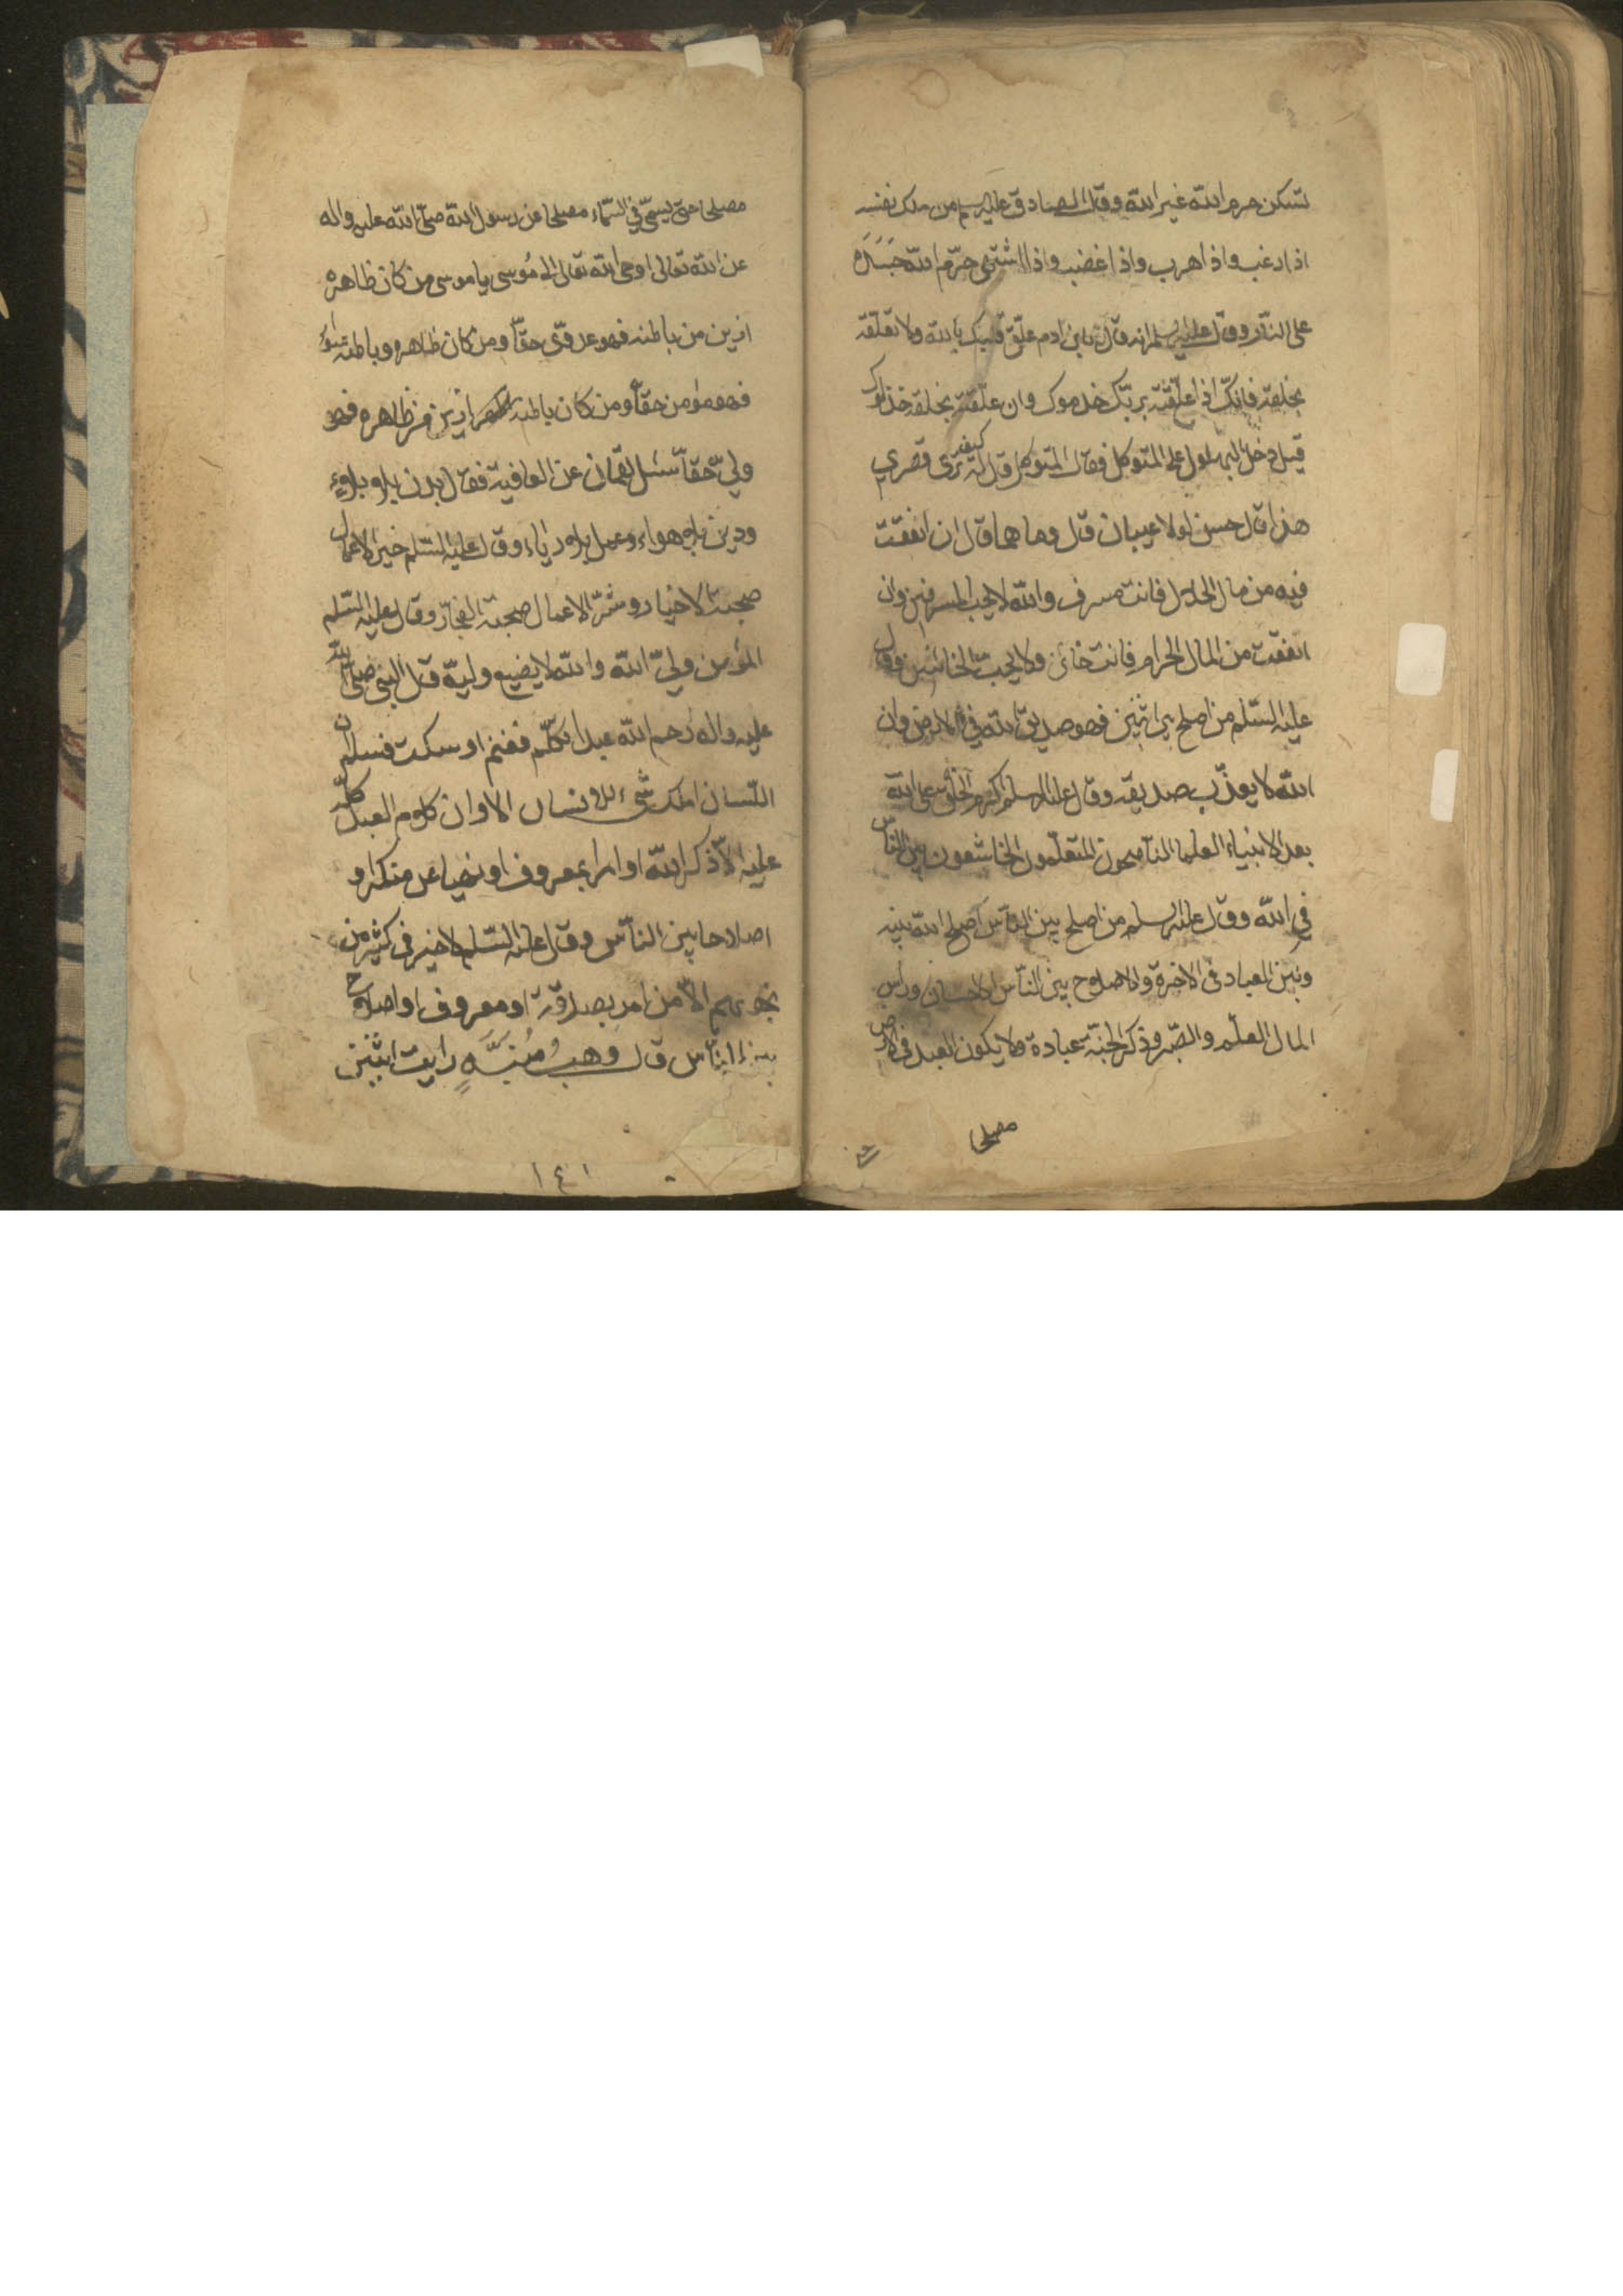 تسكن حرم الله غير الله وقال الصادق عليه سلم من ملك نفسه
اذا رغب واذا هرب واذا غضب واذا اشتهى حرّم الله جسده
على النّار وقال عليه سلم انه قال يابن ادم علّق قلبك بالله ولا تعلّقه
بخلقه فانّك اذا علّقته بربّك خدموك وان علّقته بخلقه خذلوك
قيل دخل البهلول على المتوكل فقال المتوكل قال له كيف ترى قصري
هذا قال حسن لولا عيبان قال وما هما قال ان انفقت
فيه من مال الحلال فانت مسرف والله لا يحب المسرفين وان
انفقت من المال الحرام فانت خائن ولا يحبّ الخائنين وقال
عليه السّلم من اصلح بين اثنين فهو صديق الله في الارض وان
الله لا يعذّب صديقه وقال عليه السلم اكرم الخلق على الله
بعد الانبياء العلما النّاصحون المتعلّمون الخاشعون بين النّاس
في الله وقال عليه سلم من اصلح بين النّاس اصلح الله بينه
وبين العباد في الاخرة والاصلاح بين النّاس الاحسان وراس
المال العلم والصّبر وذكر الجنّة عبادة ولا يكون العبد في الارض
مصلحا
مصلحا حتى يسمّى في السّماء مصلحا عن رسول الله صلّى الله عليه واله
عن الله تعالى اوحى الله تعالى الى مُوسى يا موسى من كان ظاهره
ازين من باطنه فهو عدوّى حقّا ومن كان ظاهره وباطنه سَوآء
فهو مؤمن حقّا ومن كان باطنه ازين من ظاهره فهو
وليّ حقّا سئل لقمان عن العافية فقال بدن بلا بلاء
ودين بلا هواء وعمل بلا رياء وقال عليه السّلم خير الاعمال
صحبة الاخيار وشرّ الاعمال صحبة الفجّار وقال عليه السّلم
المؤمن وليّ الله والله لا يضيع وليّه قال النّبى صلى الله
عليه واله رحم الله عبدا تكلّم فغنم او سكت فسلم ان
اللّسان املك شىء للانسان الا وان كلام العبد كلّه
عليه الّا ذكر الله او امرا بمعروف او نهيا عن منكر او
اصلاحا بين النّاس وقال عليه السّلم لا خير في كثير من
نجويهم الّا من امر بصدقة او معروف او اصلاح
بين النّاس قال وهب مُنبَّهٍ رايت اثنين
١٤١